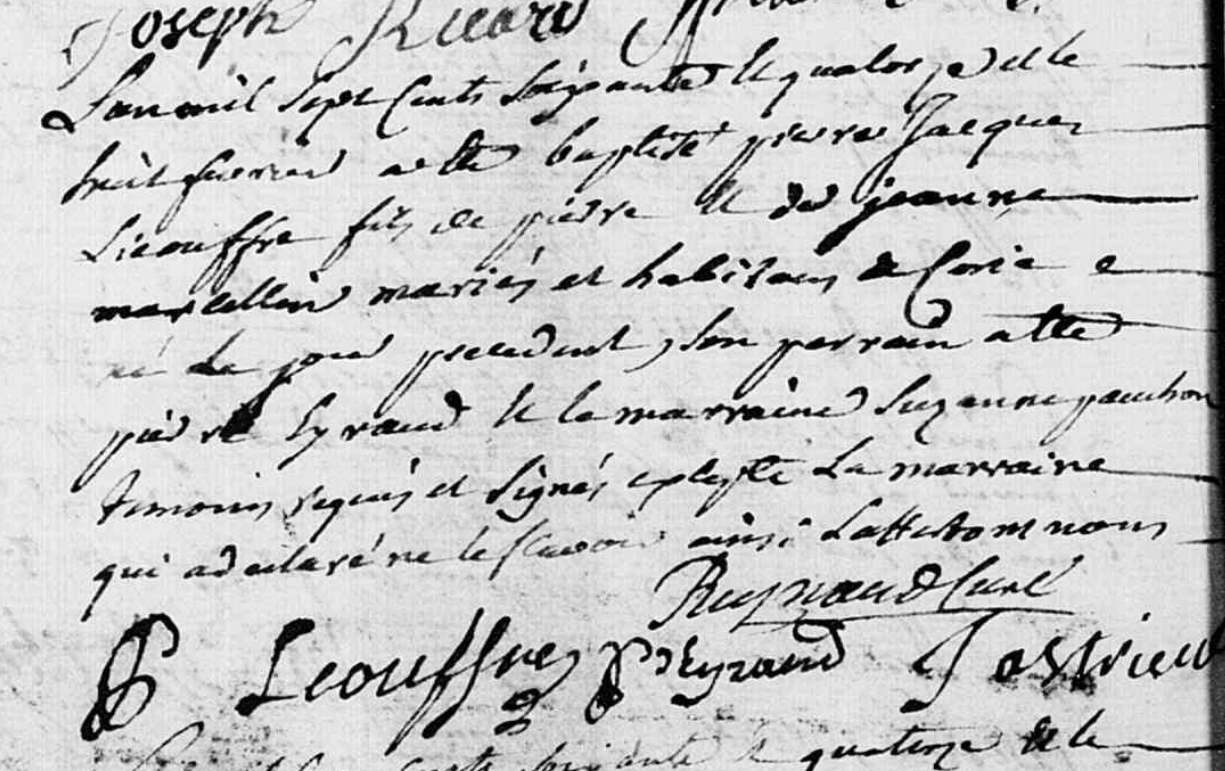 Joseph Ricard
L'an mil sept cents soixante et quatorze et le
huit fevrier a été baptisé pierre Jacques
Lieouffre fils de pierre et de jeanne
marcellin mariés et habitans de
né le jour precedent, son parrain a été
pierre Eyraud et la marraine Suzanne pauchon
temoins requis et signés excepté la marraine
qui a declaré ne le scavoir ainsi l'attestons nous
Reynaud Curé
P Leouffre P Eyraud J astrieu
soixante et quatorze et le